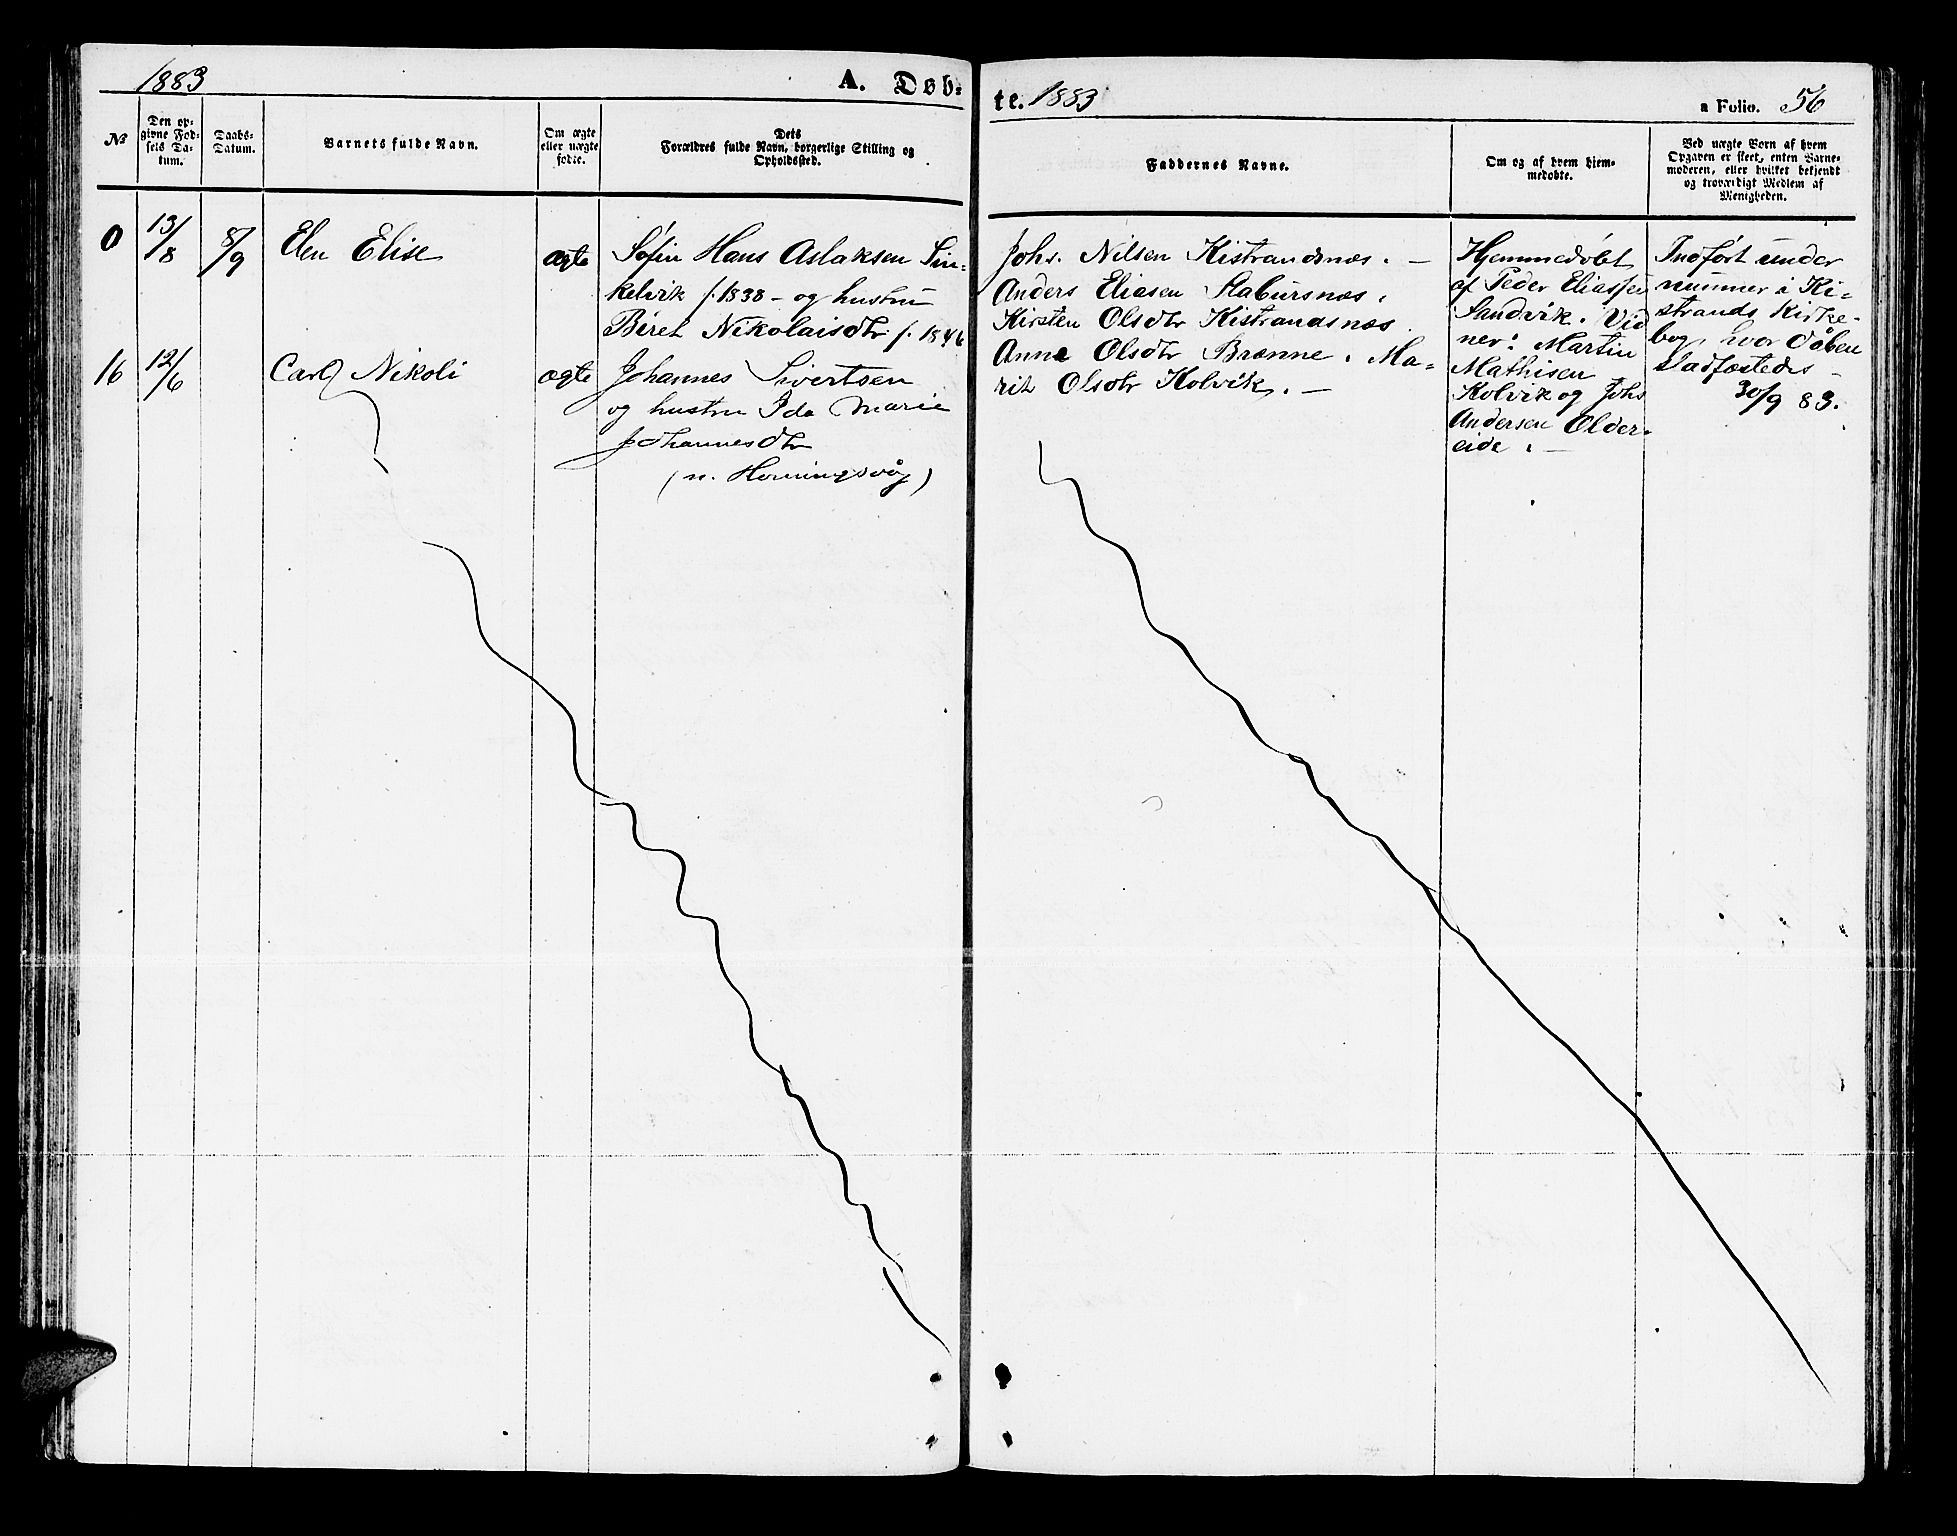 1883
A. Døb-
te. 1883
a Folio. 56
№
Den op-
givne Fød-
sels Da-
tum.
Daabs-
Datum.
Barnets fulde Navn.
Om ægte
eller uægte
fødte.
Dets
Forældres fulde Navn, borgerlige Stilling og
Opholdssted.
Faddernes Navne.
Om og af hvem hjem-
medøbte.
Ved uægte Børn af hvem
Opgaven er skeet, enten Barne-
moderen, eller hvilket bekjendt
og troværdigt Medlem af
Menigheden.
0
13/8
8/9
Elen Elise
ægte
Søfin Hans Aslaksen Sin-
kelvik f. 1838 - og hustru
Biret Nikolaisdtr f. 1846
Johs. Nilsen Kistrandsnæs. —
Anders Eliasen Stabursnæs.
Kirsten Olsdtr Kistrandsnæs.
Anne Olsdtr Brænne. Ma-
rit Olsdtr Kolvik. —
Hjemmedøbt
af Peder Eliassen
Sandvik. Vid
ner: Martin
Mathisen
Kolvik og Johs
Andersen Older-
eide. —
Indført under
nummer i Ki-
strands Kirke-
bog, hvor dåben
stadfæstedes
30/9 83.
16
12/6
Carl Nikoli
ægte
Johannes Sivertsen
og hustru Ida Marie
Johannesdtr
(n. Honningsvåg)